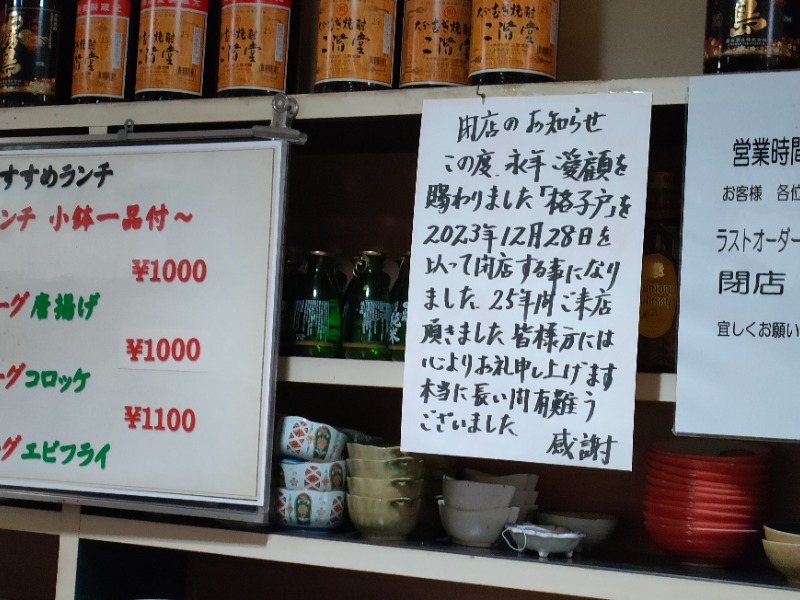 大分むぎ焼酎
二階堂
すすめランチ
ンチ 小鉢一品付～
¥1000
ーグ 唐揚げ
¥1000
ーグ コロッケ
¥1100
ーグ エビフライ
閉店のお知らせ
この度、永年ご愛顧を
賜わりました「格子戸」を
2023年12月28日を
以って閉店する事になり
ました。25年間ご来店
頂きました皆様方には
心よりお礼申し上げます
本当に長い間有難う
ございました。
感謝
営業時間
お客様 各位
ラストオーダー
閉店
宜しくお願い